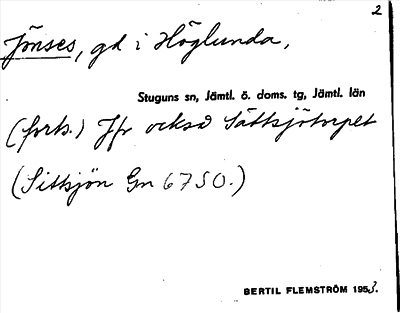 2
Jönses, gd i Höglunda,
Stuguns sn, Jämtl. ö. doms. tg, Jämtl. län
(forts.) Jfr också Sättsjötorpet
(Sittsjön Gn 6750.)
BERTIL FLEMSTRÖM 1953.